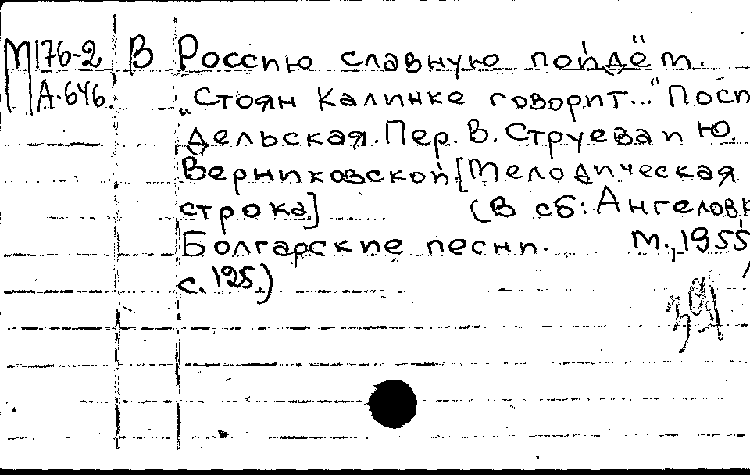 М176-2 В Россию славную пойдём.
А-646. „Стоян Калинке говорит..." Посп
Дельская. Пер. В. Струева и Ю.
Верниковской [Мелодическая
строка] (В сб: Ангелов,
Болгарские песни. М., 1955,
с. 125.)